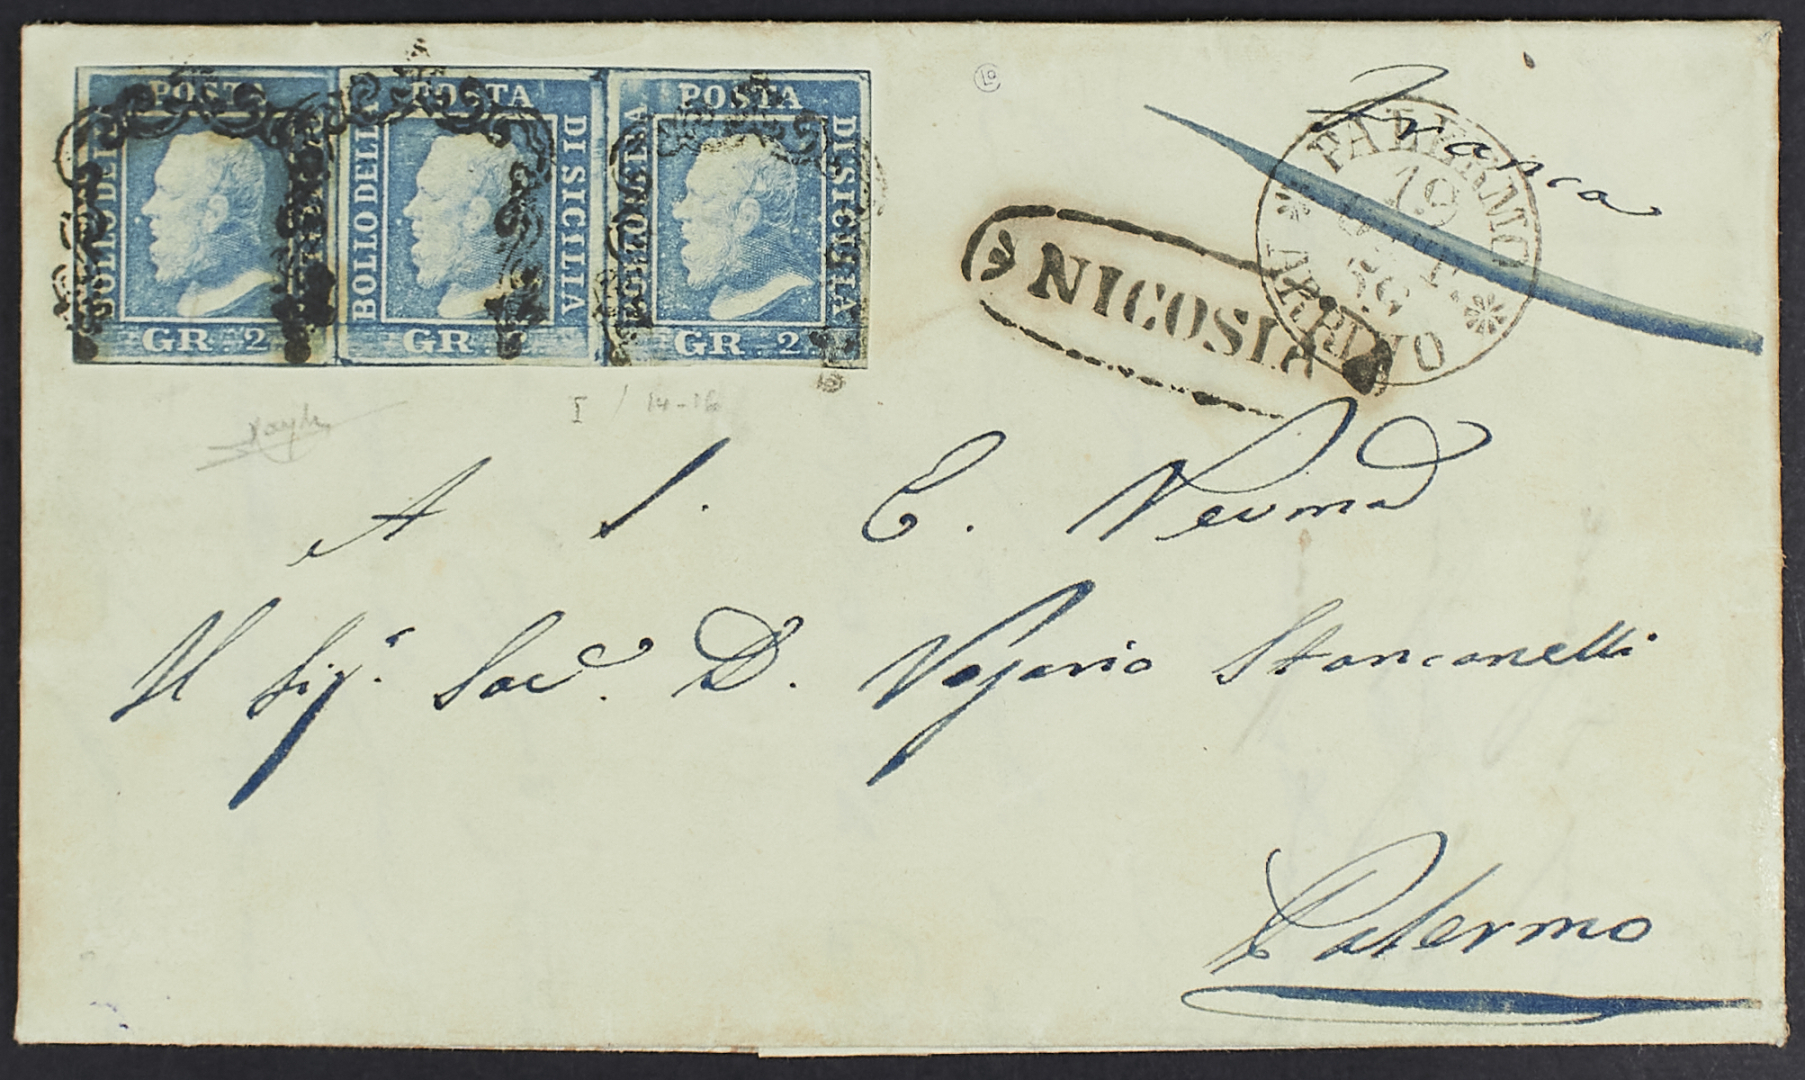 POSTA
BOLLO DELLA
DI SICILIA
GR. 2
POSTA
BOLLO DELLA
DI SICILIA
GR.
POSTA
BOLLO DELLA
DI SICILIA
GR. 2
Franca
PALERMO
19
56
ARRIVO
NICOSIA
I / 14-16
A S. E. Revma
Il Sigr. Sacd. D. Stancanelli
Palermo